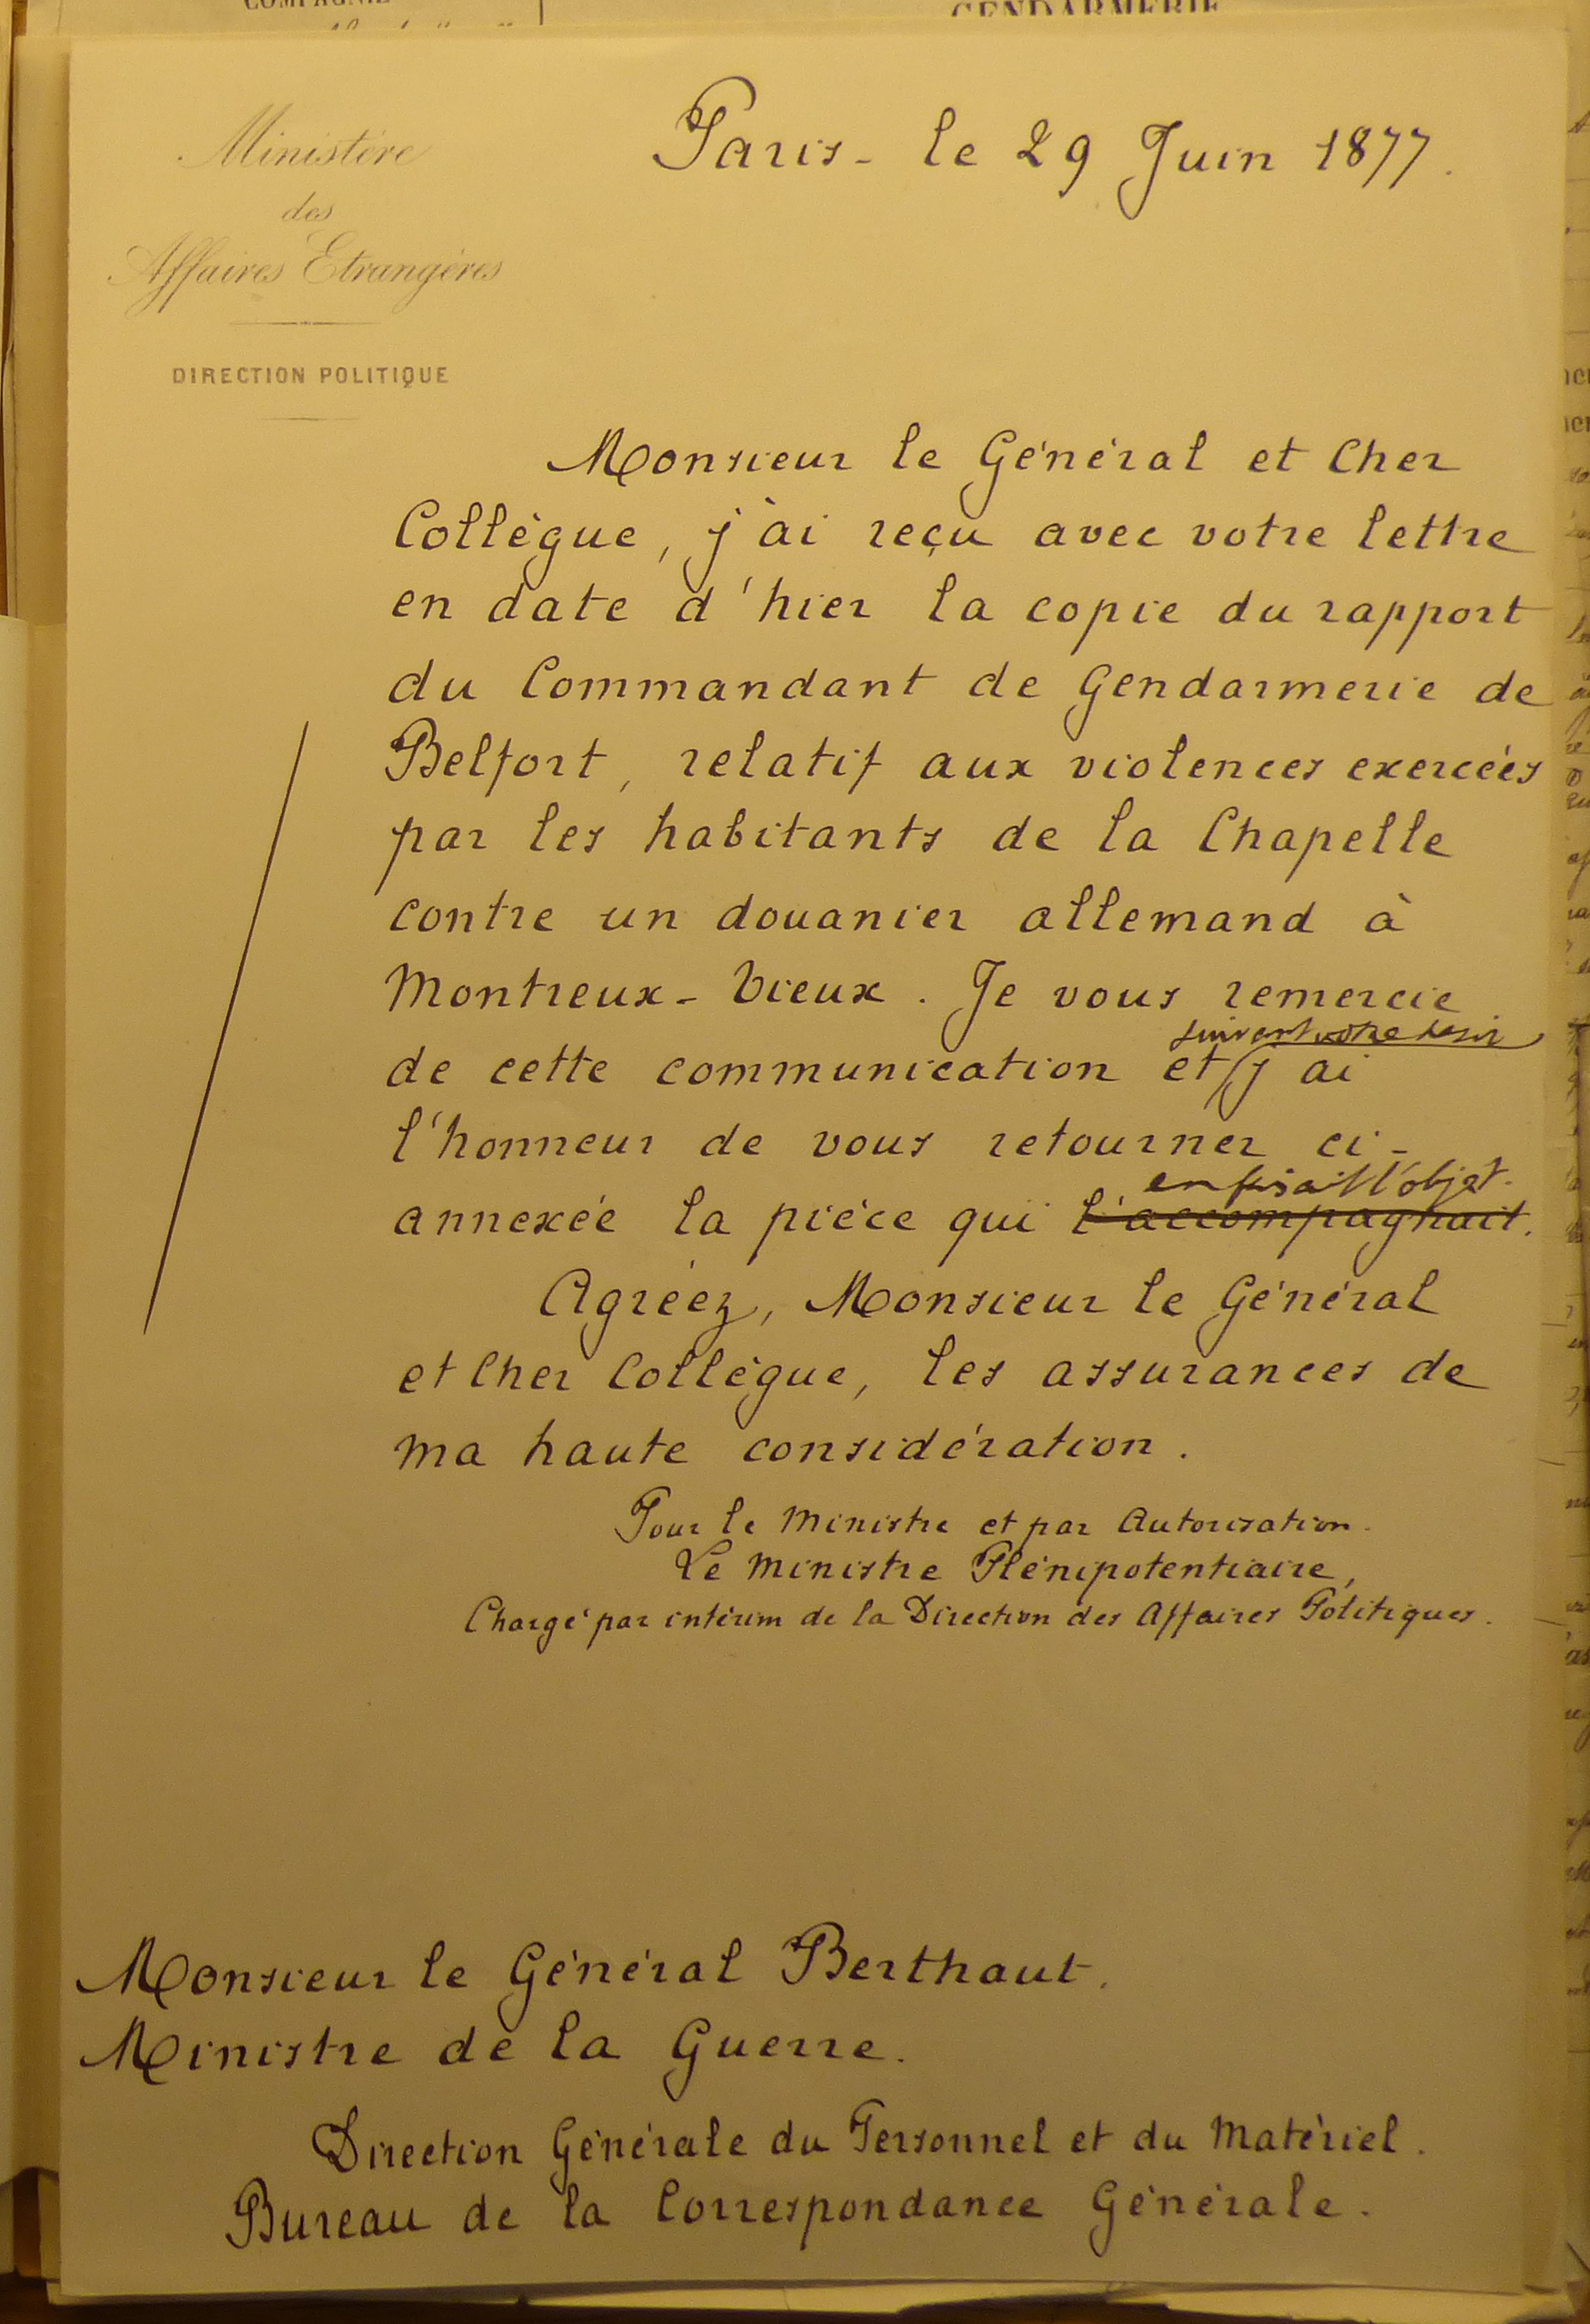 COMPAGNIE
GENDARMERIE
Ministère
des
Affaires Etrangères
DIRECTION POLITIQUE
Paris - le 29 Juin 1877.
Monsieur le Général et Cher
Collègue, j'ai reçu avec votre lettre
en date d'hier la copie du rapport
du Commandant de Gendarmerie de
Belfort, relatif aux violences exercées
par les habitants de la Chapelle
contre un douanier allemand à
Montreux-Vieux. Je vous remercie
suivant votre désir
de cette communication et j'ai
l'honneur de vous retourner ci-
en faisait l'objet.
annexée la pièce qui l'accompagnait.
Agréez, Monsieur le Général
et Cher Collègue, les assurances de
ma haute considération.
Pour le Ministre et par Autorisation.
Le Ministre Plénipotentiaire,
Chargé par intérim de la Direction des Affaires Politiques.
Monsieur le Général Berthaut.
Ministre de la Guerre.
Direction Générale du Personnel et du Matériel.
Bureau de la Correspondance Générale.